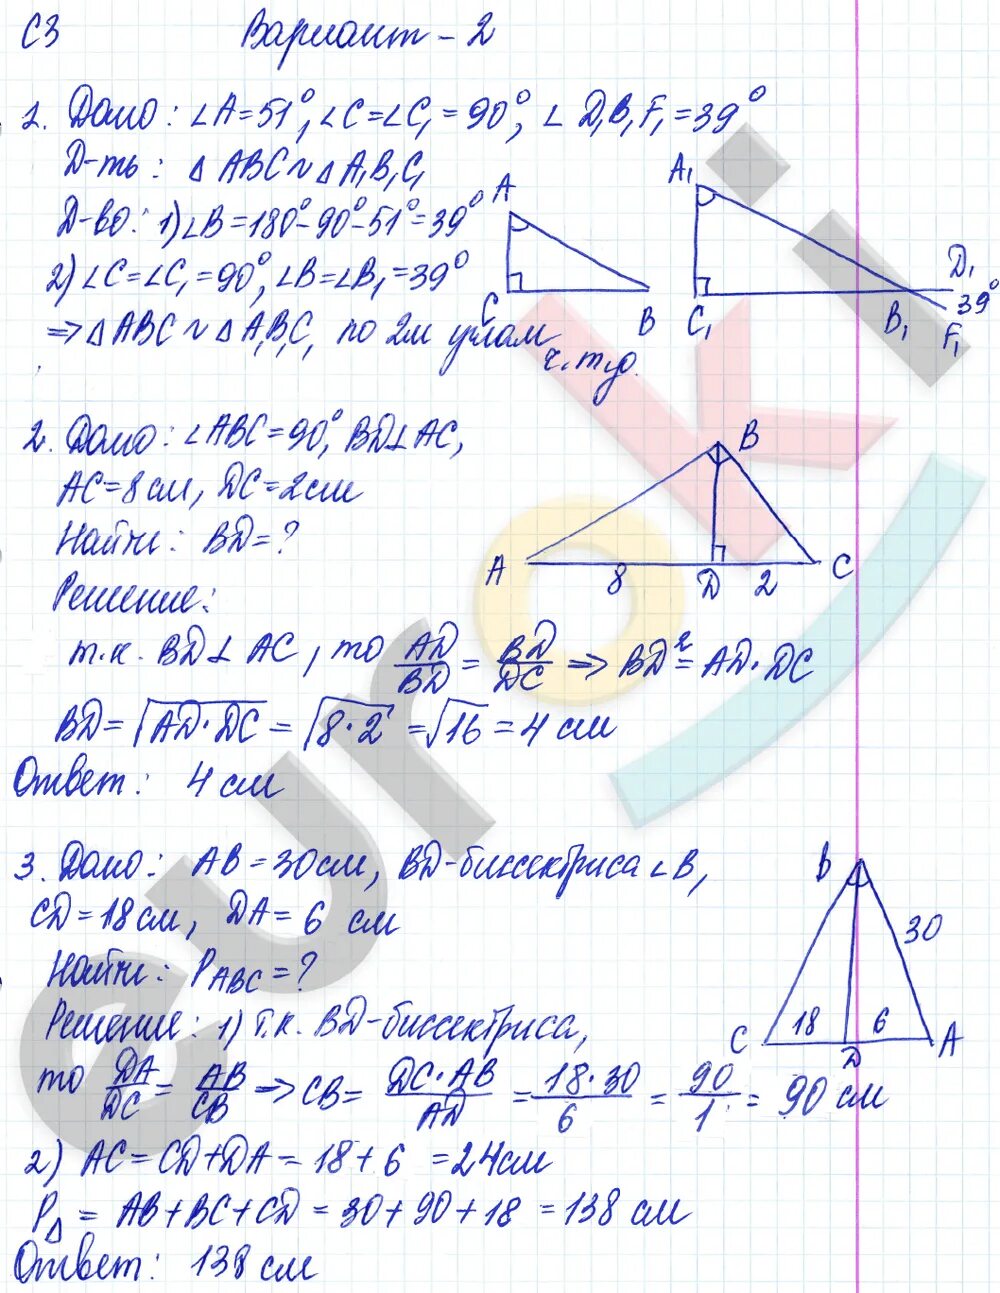 С3 Вариант - 2
1. Дано: ∠A=51°, ∠C=∠C₁=90°, ∠D₁B₁F₁=39°
Д-ть: △ABC ~ △A₁B₁C₁
Д-во: 1) ∠B=180°-90°-51°=39°
2) ∠C=∠C₁=90°, ∠B=∠B₁=39°
⇒ △ABC ~ △A₁B₁C₁ по 2м углам
ч.т.д.
A
C
B
A₁
C₁
B₁
D₁
39°
F₁
2. Дано: ∠ABC=90°, BD⊥AC,
AC=8см, DC=2см
Найти: BD=?
Решение:
т.к. BD⊥AC, то AD/BD = BD/DC ⇒ BD²=AD·DC
BD=√AD·DC = √8·2 = √16 = 4 см
Ответ: 4 см
B
A
8
D
2
C
3. Дано: AB=30см, BD-биссектриса ∠B,
CD=18см, DA=6 см
Найти: P_ABC=?
Решение: 1) т.к. BD-биссектриса,
то DA/DC = AB/CB ⇒ CB= DC·AB/AD = 18·30/6 = 90/1 = 90 см
2) AC=CD+DA=18+6 =24см
P△ = AB+BC+CD=30+90+18 =138 см
Ответ: 138 см
B
30
C
18
6
A
D
euroki